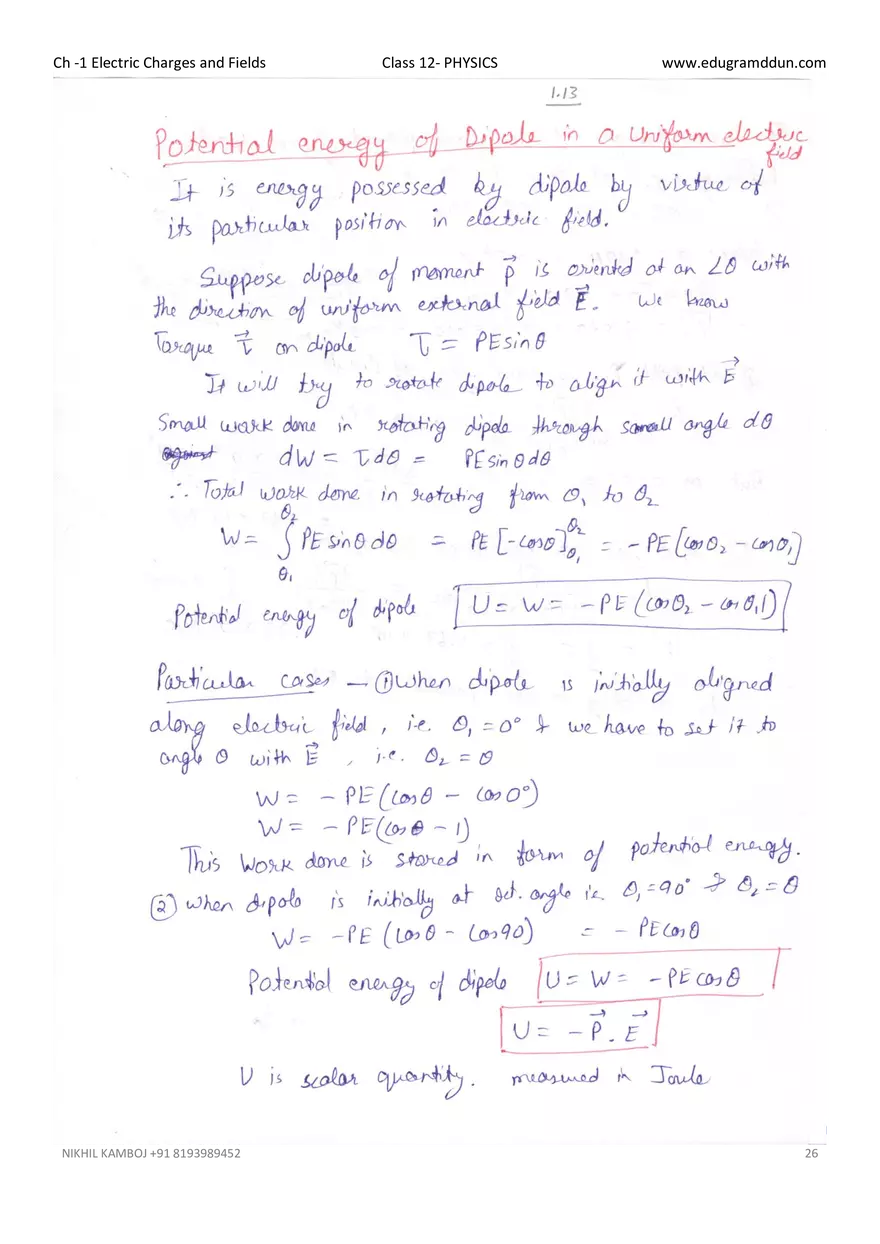 Ch -1 Electric Charges and Fields Class 12- PHYSICS www.edugramddun.com
1.13
Potential energy of Dipole in a uniform electric field
It is energy possessed by dipole by virtue of
its particular position in electric field.
Suppose dipole of moment p⃗ is oriented at an ∠θ with
the direction of uniform external field E⃗. We know
Torque τ⃗ on dipole τ = PE sin θ
It will try to rotate dipole to align it with E⃗
Small work done in rotating dipole through small angle dθ
dW = τdθ = PE sin θ dθ
∴ Total work done in rotating from θ₁ to θ₂
W = ∫_θ₁^θ₂ PE sin θ dθ = PE [-cos θ]_θ₁^θ₂ = - PE [cos θ₂ - cos θ₁]
Potential energy of dipole U = W = - PE (cos θ₂ - cos θ₁1)
Particular cases - ① When dipole is initially aligned
along electric field, i.e. θ₁ = 0° & we have to set it to
angle θ with E⃗, i.e. θ₂ = θ
W = - PE (cos θ - cos 0°)
W = - PE (cos θ - 1)
This work done is stored in form of potential energy.
② When dipole is initially at angle i.e. θ₁ = 90° & θ₂ = θ
W = - PE (cos θ - cos 90) = - PE cos θ
Potential energy of dipole U = W = - PE cos θ
U = - P⃗ . E⃗
U is scalar quantity. measured in Joule
NIKHIL KAMBOJ +91 8193989452 26